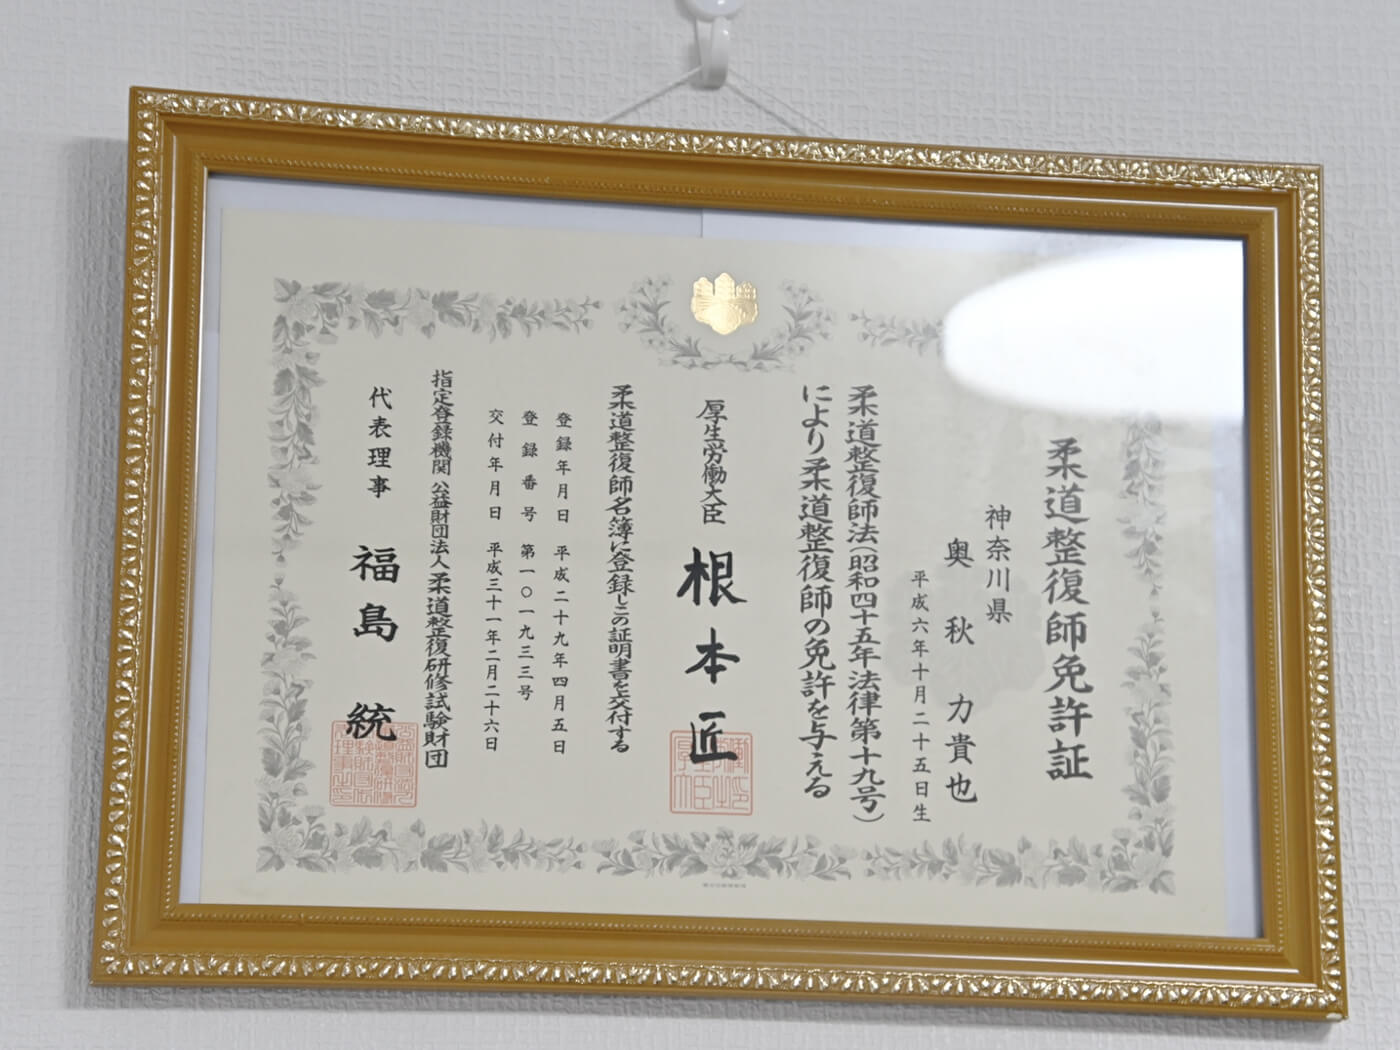 柔道整復師免許証
神奈川県
奥秋 力貴也
平成六年十月二十五日生
柔道整復師法(昭和四十五年法律第十九号)
により柔道整復師の免許を与える
厚生労働大臣 根本匠
柔道整復師名簿に登録しこの証明書を交付する
登録年月日 平成二十九年四月五日
登録番号 第一〇一九三三号
交付年月日 平成三十一年二月二十六日
指定登録機関 公益財団法人柔道整復研修試験財団
代表理事 福島 統